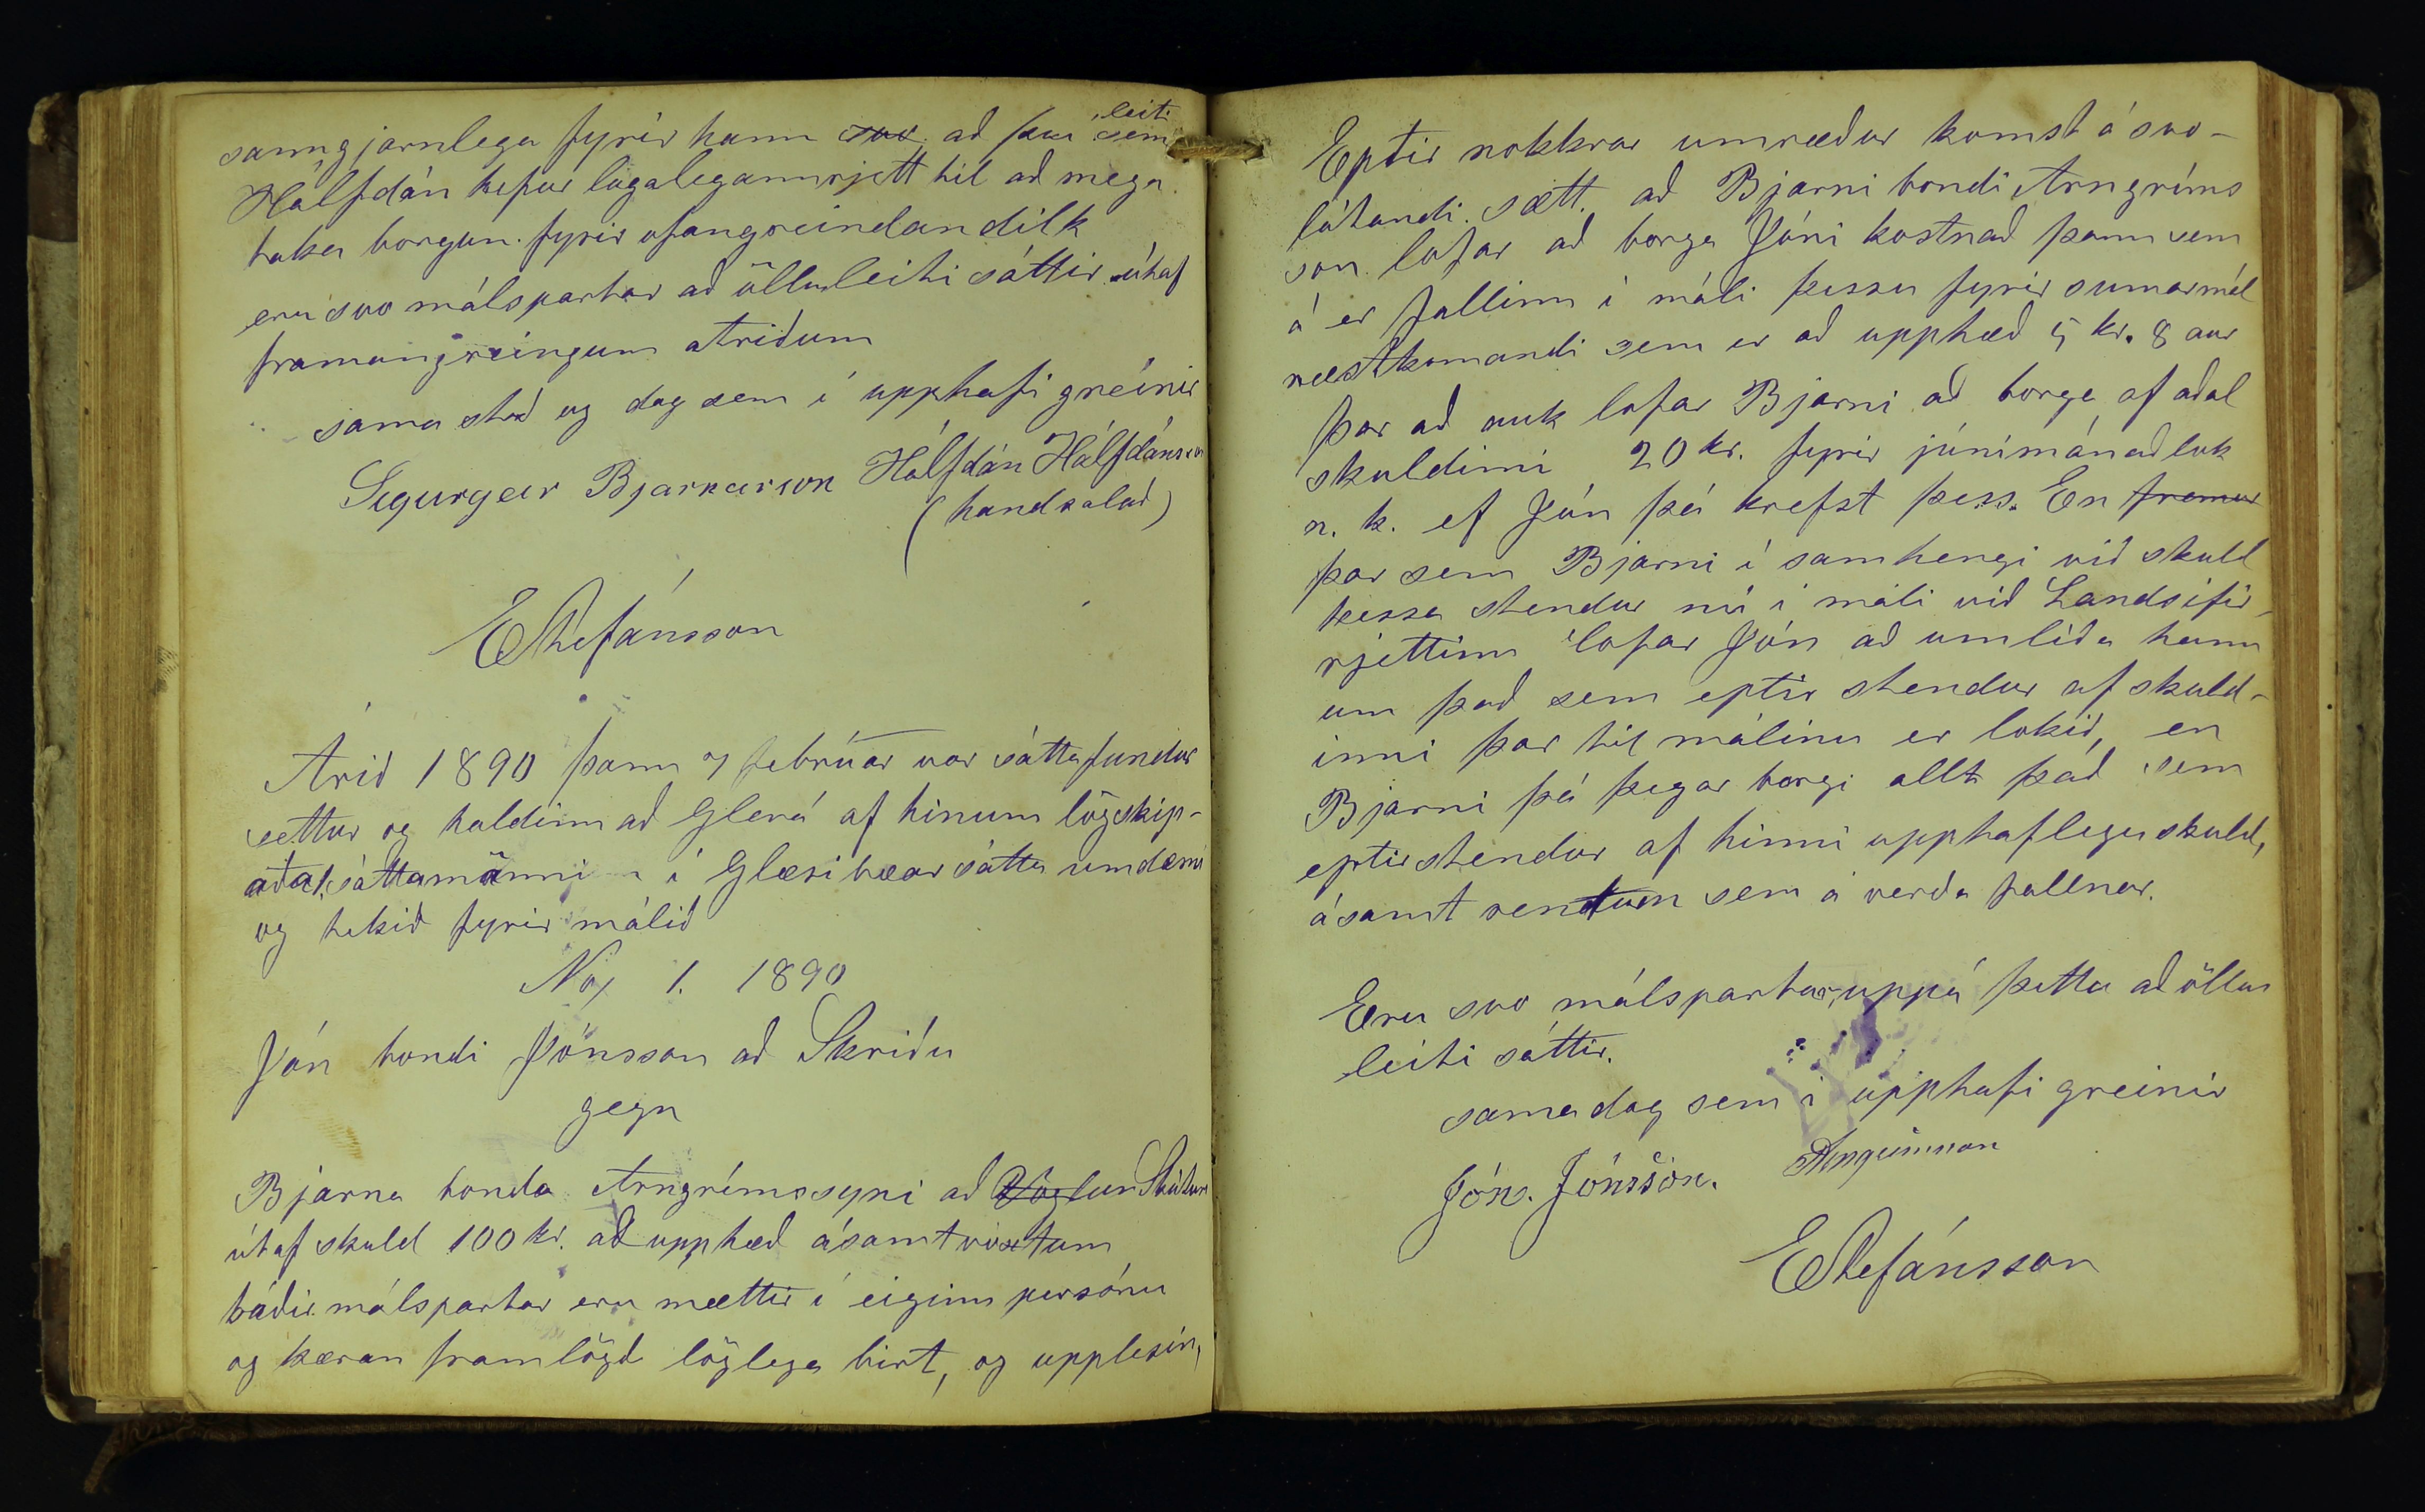 sanngjarnlega fyrir hann svo að því leiti sem
Hálfdán hefur lagalegann rjett til að mega
taka borgun fyrir ofangreindan dilk
eru svo málspartar að öllu leiti sáttir útaf
framangreingum atriðum
sama stað og dag sem í upphafi greinir
Sigurgeir Bjarnarson Hálfdán Hálfdánsson
(handsalað)
EStefánsson
Árið 1890 þann 7 febrúar var sáttafundur
settur og haldinn að Glerá af hinum lögskip-
aða sáttamönnum í Glæsibæar sátta umdæmi
og tekið fyrir málið
No 1. 1890
Jón bondi Jónsson að Skriðu
gegn
Bjarna bonda Arngrímssyni að Vöglum
útaf skuld 100 kr. að upphæð ásamt vöxtum
báðir málspartar eru mættir í eiginn persónu
og kæran framlögð löglega birt, og upplesin,
Eptir nokkrar umræður komst á svo-
látandi sætt. að Bjarni bondi Arngríms
son lofar að borga Jóni kostnað þann sem
á er fallinn í máli þessu fyrir sumarmál
næstkomandi sem er að upphæð 5 kr. 8 aur
Þar að auk lofar Bjarni að borga af aðal
skuldinni 20 kr. fyrir júnímánaðlok
n. k. ef Jón þá krefst þess. En fremur
þar sem Bjarni í samhengi við skuld
þessa stendur nú í máli við Landsifir-
rjettinn lofar Jón að umlíða hann
um það sem eptir stendur af skuld-
inni þar til málinu er lokið, en
Bjarni þá þegar borgi allt það sem
eptirstendur af hinni upphaflegu skuld,
ásamt rentum sem á verða fallnar.
Eru svo málspartar uppá þetta að öllu
leiti sáttir.
sama dag sem í upphafi greinir
Jón. Jónsson. Arngrímsson
EStefánsson